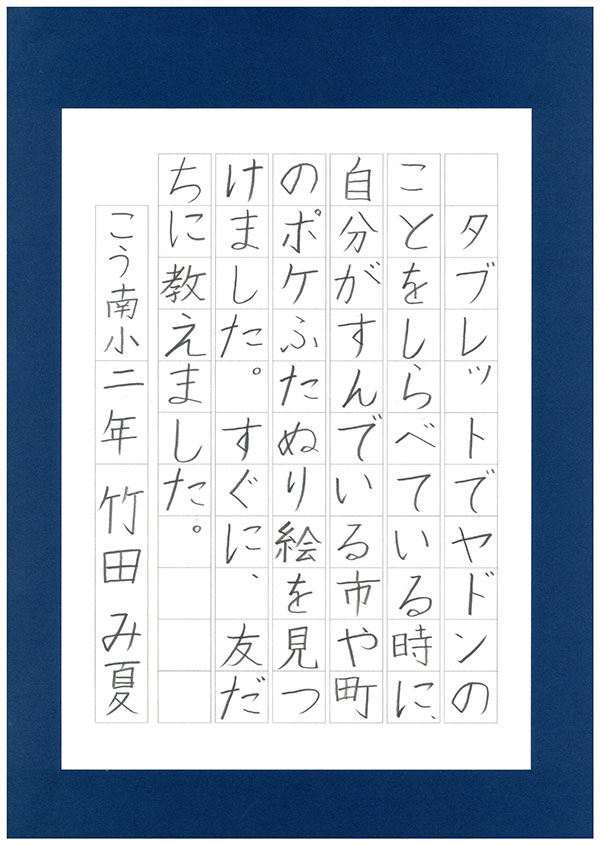 タブレットでヤドンの
ことをしらべている時に、
自分がすんでいる市や町
のポケふたぬり絵を見つ
けました。すぐに、友だ
ちに教えました。
こう南小二年 竹田み夏